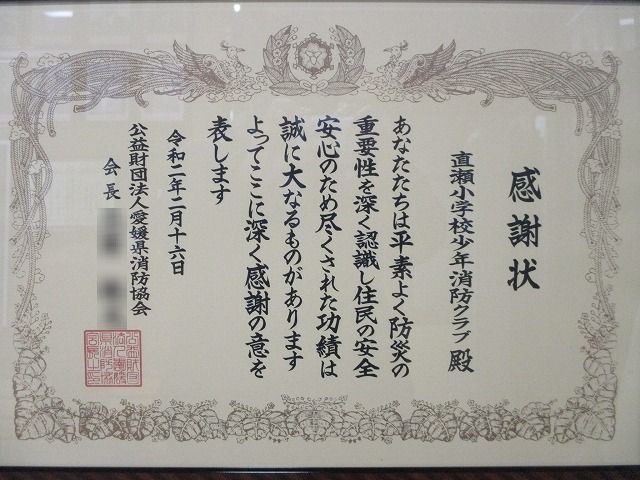 感謝状
直瀬小学校少年消防クラブ 殿
あなたたちは平素よく防災の
重要性を深く認識し住民の安全
安心のため尽くされた功績は
誠に大なるものがあります
よってここに深く感謝の意を
表します
令和二年二月十六日
公益財団法人愛媛県消防協会
会長